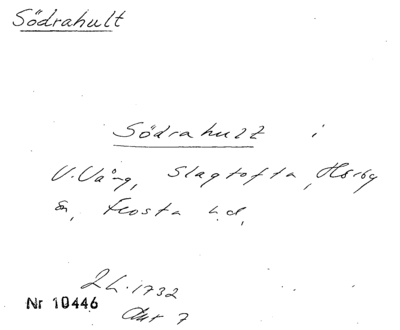 Södrahult
Södrahult i
V. Vång, Slagtofta, Hörby
sn, Frosta hd,
2 L. 1732
Akt 7
Nr 10446